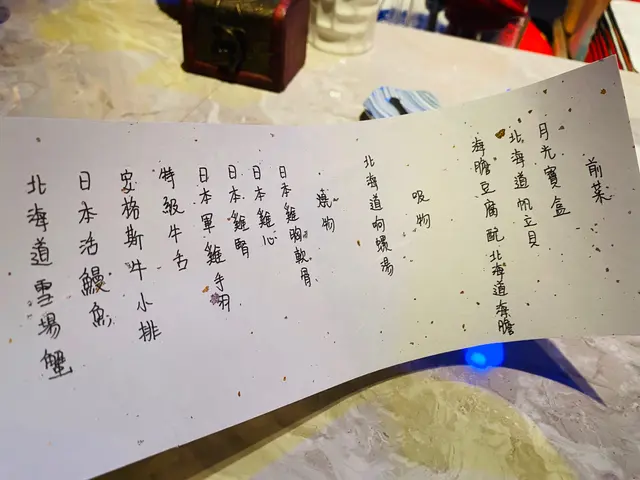 前菜
月光寶盒
北海道帆立貝
海膽豆腐配北海道海膽
吸物
北海道响螺湯
燒物
日本雞胸軟骨
日本雞心
日本雞腎
日本軍雞手羽
特級牛舌
安格斯牛小排
日本活鰻魚
北海道雪場蟹